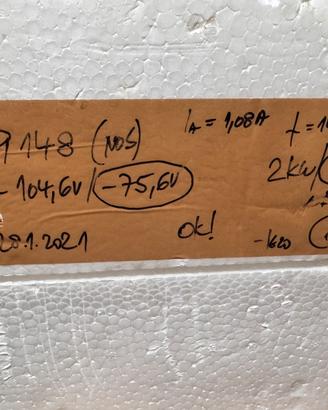 9148 (NOS) IA = 1,08A f = 1
- 104,6V / -75,6V 2kW/
28.1.2021 ok! -1620